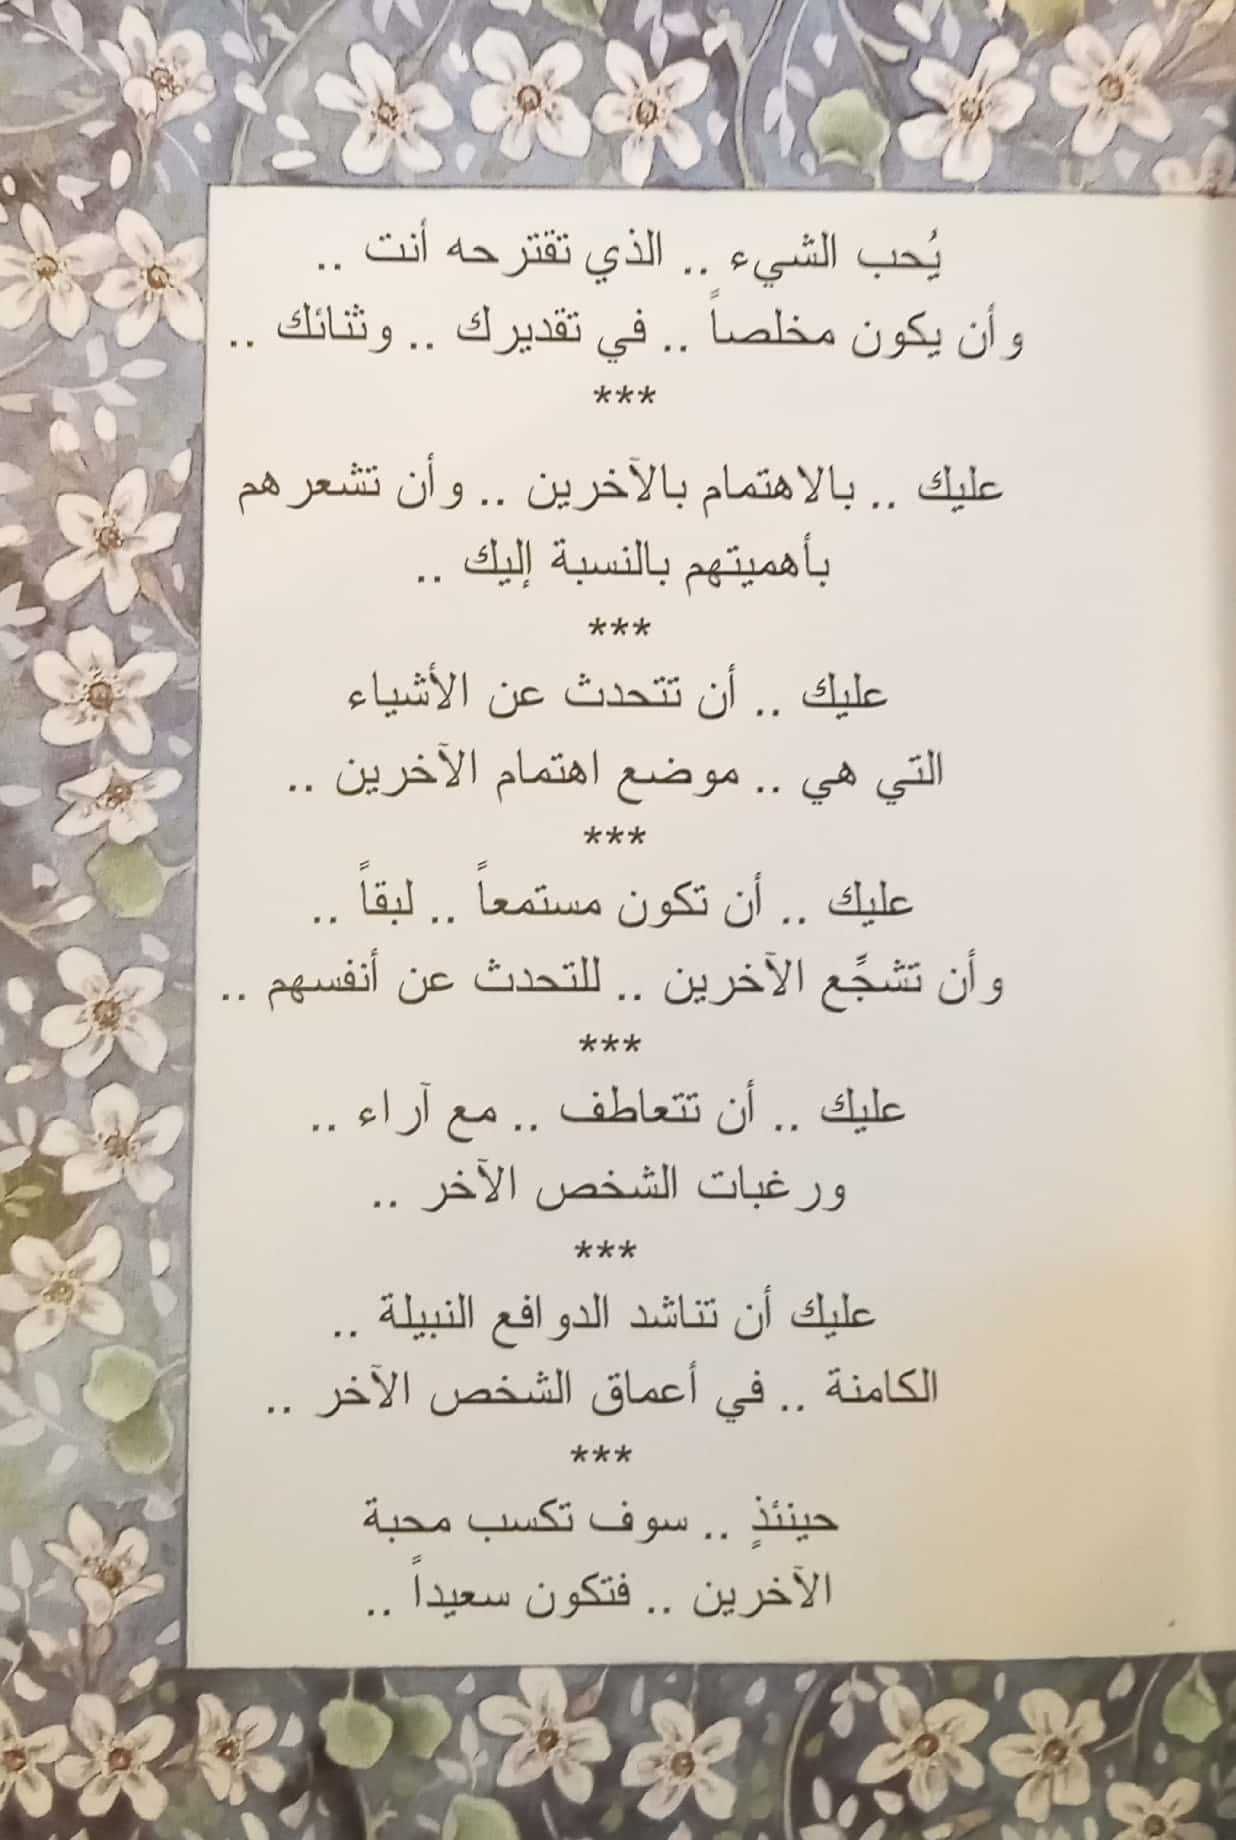 يُحب الشيء .. الذي تقترحه أنت ..
وأن يكون مخلصاً .. في تقديرك .. وثنائك ..
***
عليك .. بالاهتمام بالآخرين .. وأن تشعرهم
بأهميتهم بالنسبة إليك ..
***
عليك .. أن تتحدث عن الأشياء
التي هي .. موضع اهتمام الآخرين ..
***
عليك .. أن تكون مستمعاً .. لبقاً ..
وأن تشجِّع الآخرين .. للتحدث عن أنفسهم ..
***
عليك .. أن تتعاطف .. مع آراء ..
ورغبات الشخص الآخر ..
***
عليك أن تناشد الدوافع النبيلة ..
الكامنة .. في أعماق الشخص الآخر ..
***
حينئذٍ .. سوف تكسب محبة
الآخرين .. فتكون سعيداً ..